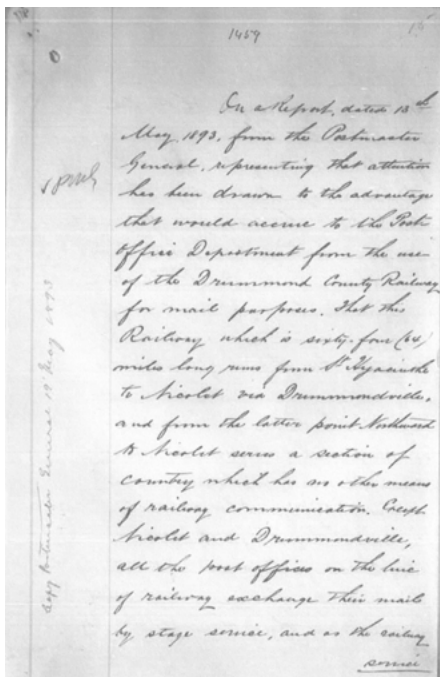 1459
On a Report, dated 13th
May, 1893, from the Postmaster
General, representing that attention
has been drawn to the advantage
that would accrue to the Post
Office Department from the use
of the Drummond County Railway
for mail purposes. That this
Railway which is sixty-four (64)
miles long runs from St Hyacinthe
to Nicolet via Drummondville,
and from the latter point Northward
to Nicolet serves a section of
country which has no other means
of railway communication. Except
Nicolet and Drummondville,
all the post offices on the line
of railway exchange their mails
by stage service, and as the railway
service
Copy Postmaster General 18 May 1893